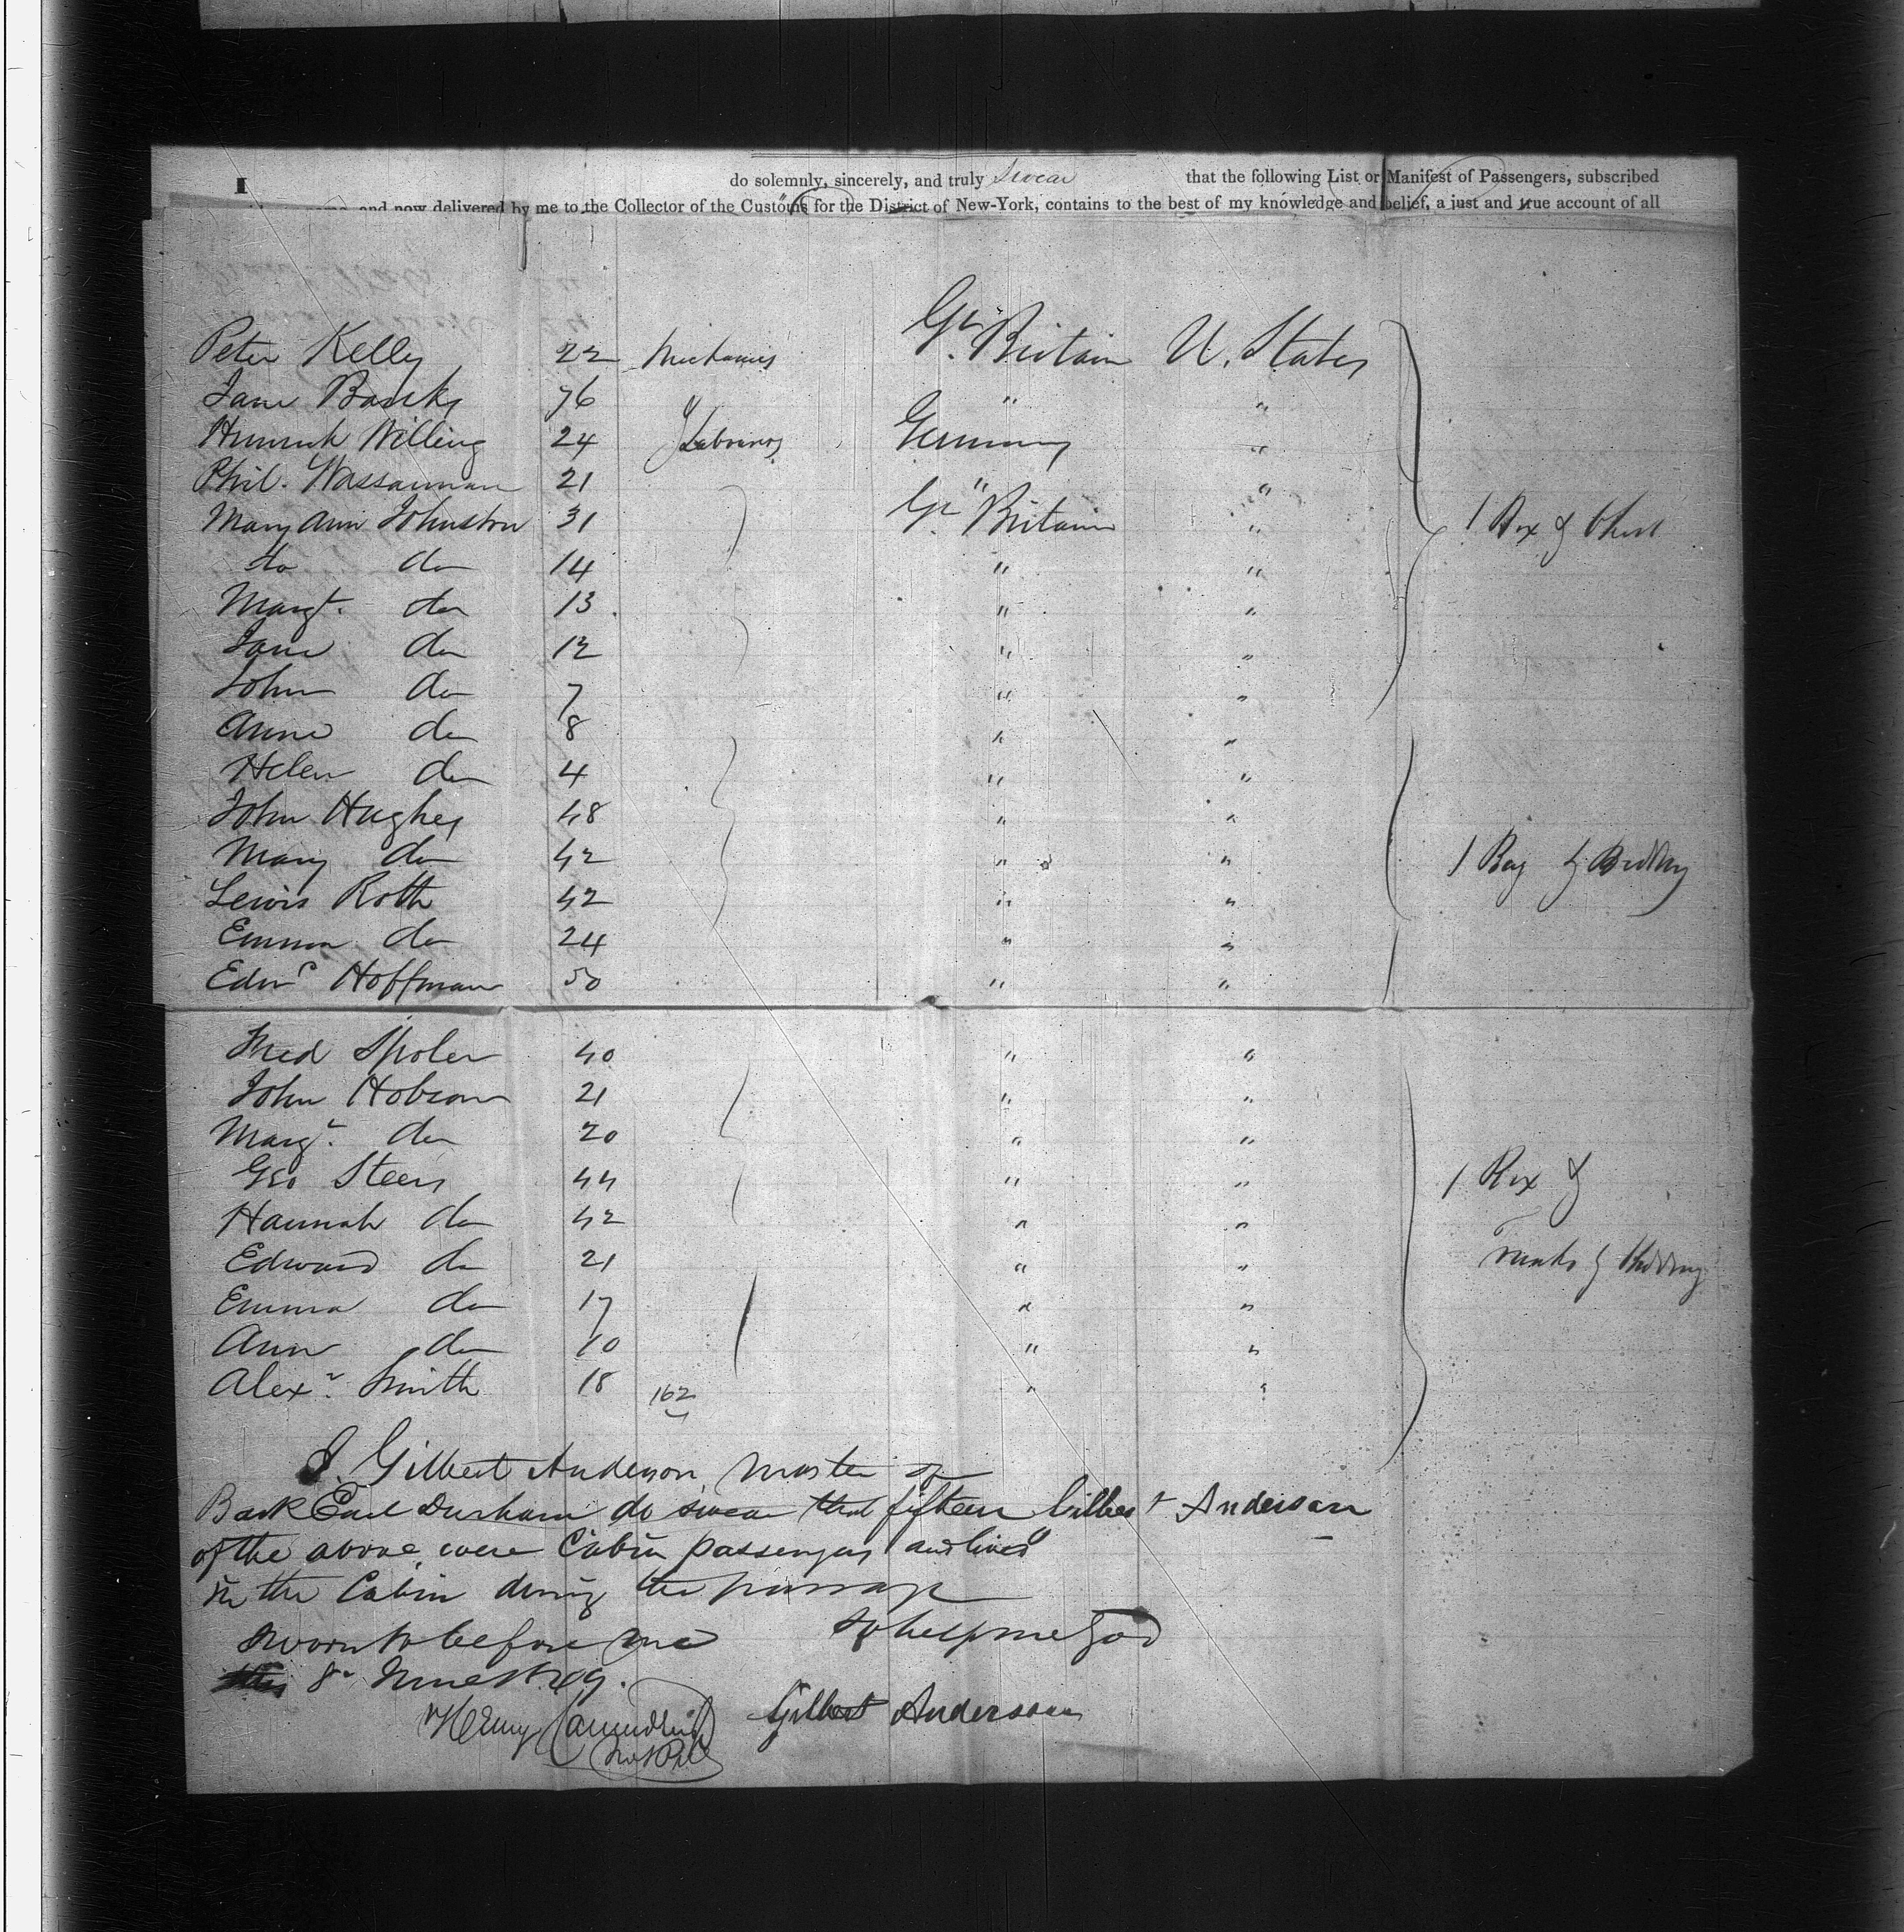 I do solemnly, sincerely, and truly Swear that the following List or Manifest of Passengers, subscribed
and now delivered by me to the Collector of the Customs for the District of New-York, contains to the best of my knowledge and belief, a just and true account of all
Peter Kelly 22 Mechanics Gr. Britain U. States
Jane Banks 76 " "
Heinrich Willing 24 Labourers Germany "
Phil. Wassarman 21 " "
Mary Ann Johnston 31 Gr. Britain " 1 Box & Chest
do do 14 " "
Margt. do 13 " "
Jane do 12 " "
John do 7 " "
Anne do 8 " "
Helen do 4 " "
John Hughes 48 " "
Mary do 42 " " 1 Bag & Bedding
Lewis Roth 42 " "
Emma do 24 " "
Edwd Hoffman 50 " "
Fred Spoler 40 " "
John Hobson 21 " "
Margt. do 20 " "
Geo Steers 44 " " 1 Box &
Hannah do 42 " "
Edward do 21 " " Trunks & Bedding
Emma do 17 " "
Ann do 10 " "
Alexr. Smith 18 162 " "
I. Gilbert Anderson master of
Bark Earl Durham do swear that fifteen Gilbert Anderson
of the above were Cabin passengers and lived
in the Cabin during the passage
Sworn to before me So help me God
this 8 June 1849.
Henry Gilbert Anderson